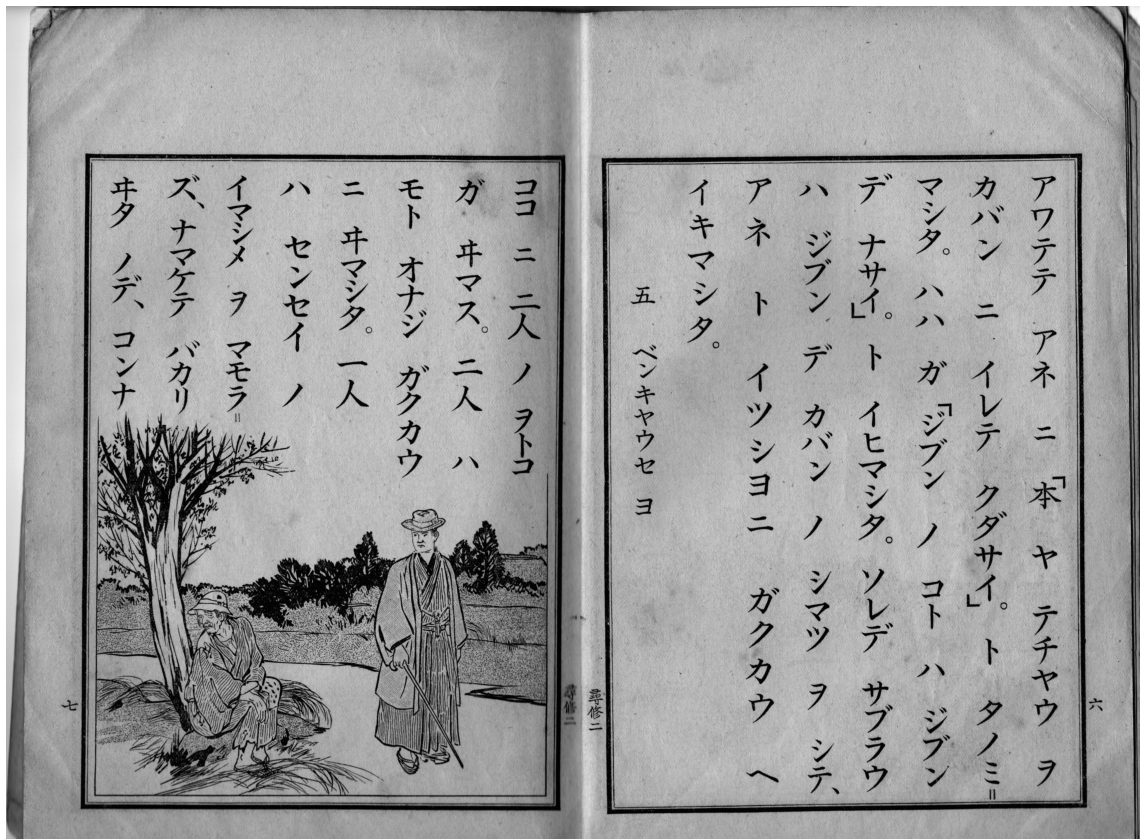 アワテテ アネ ニ「本 ヤ テチヤウ ヲ
カバン ニ イレテ クダサイ。」ト タノミ=
マシタ。ハハ ガ「ジブン ノ コト ハ ジブン
デ ナサイ。」ト イヒマシタ。ソレデ サブラウ
ハ ジブン デ カバン ノ シマツ ヲ シテ、
アネ ト イツシヨニ ガクカウ ヘ
イキマシタ。
五 ベンキヤウセ ヨ
六
尋修二
ココ ニ 二人 ノ ヲトコ
ガ ヰマス。二人 ハ
モト オナジ ガクカウ
ニ ヰマシタ。一人
ハ センセイ ノ
イマシメ ヲ マモラ=
ズ、ナマケテ バカリ
ヰタ ノデ、コンナ
尋修二
七